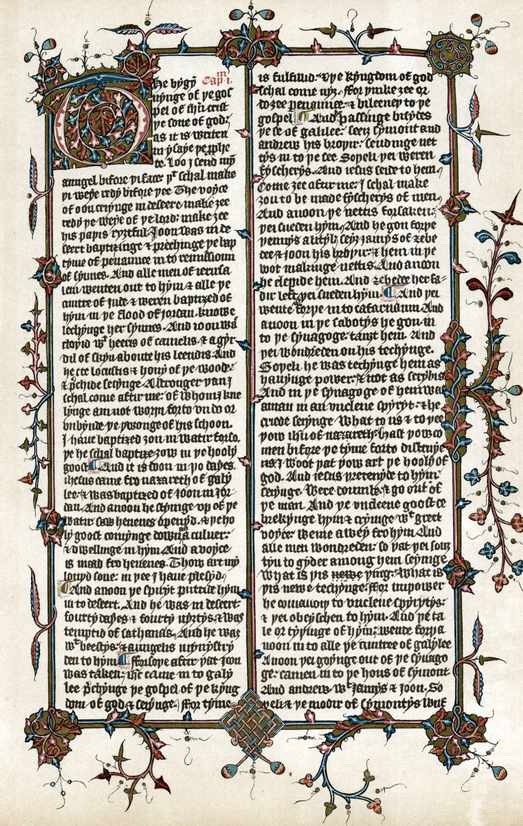 The bygyn Capm 1.
nynge of ye gos
pel of ihu crist
ye sone of god:
as it is writen
in ysaye ye prophe
te. Loo I send myn
aungel bifore yi face: yt schal make
yi weye redy bifore yee The voyce
of oon cryinge in desert: make zee
redy ye weye of ye lord: make zee
his payis ryztful. Joon was in de
sert baptizinge & prechinge ye bap
tym of penaunce in to remissioun
of synnes. And alle men of ierusa
lem wenten out to hym & alle ye
cuntre of Jude & weren baptised of
hym in ye flood of jordan: knowe
lechynge her synnes. And ioon was
cloyid wt heeris of camelis: & a gyr
dil of skyn aboute his leendis And
he eet locustis & hony of ye wode:
& prechide seiynge. A stronger yan I
schal come aftir me: of whom I kne
lynge am not woryi for to vndo or
vnbynde ye ywonge of his schoon.
I haue baptized zou in watir forso
ye he schal baptize zow in ye hooly
goost And it is doon in yo dayes:
ihesus came fro nazareth of galy
lee: & was baptized of ioon in Jor
dan. And anoon he stying vp of ye
watir saw heuenes openyd: & ye ho
ly goost comynge doun as culuer:
& dwellinge in hym. And a voyce
is maad fro heuenes. Thow art my
louyd sone: in yee I haue plesyd.
And anoon ye spiryt puttide hym
in to desert. And he was in desert
fourty dayes & fourty nyztis: & was
temptid of sathanas. And he was
wt beestys: & aungelis mynystry
den to hym Forsoye aftir yat ioon
was taken: ihc came in to galy
lee prechynge ye gospel of ye kyng
dom of god & seiynge. For tyme
is fulfillid: & ye kyngdom of god
schal come nyz. For yinke zee or
do zee penaunce: & bileeuey to ye
gospel And passinge bisydes
ye se of galilee: seez symont and
andrew his broyir: sendinge net
tys in to ye see Soyeli yei weren
fyscherys. And iesus seide to hem.
Come zee aftir me: I schal make
zou to be made fyscherys of men.
And anoon ye nettis forsaken:
yei sueden hym. And he gon forye
yennys a lityl: seiz jamys of zebe
dee & joon his broyir: & hem in ye
boot makinge nettis. And anoon
he clepide hem. And zebede her fa
dir left: yei sueden hym. And yei
wente forye in to cafarnaum And
anoon in ye sabotys he gon in
to ye synagoge: tauzt hem. And
yei wondreden on his techynge.
Soyeli he was techynge hem as
hauynge power: & not as scrybis
And in ye synagoge of hem was
a man in an vnclene spyryt: & he
criede seiynge. What to us & to yee
yow ihu of nazareth: hast yow co
men bifore ye tyme for to distruye
us? I woot yat yow art ye hooly of
god. And iesus yretenyde to hym:
seiynge. Were doumb: & go out of
ye man. And ye vnclene goost to
brekynge hym & cryinge wt greet
voyce: wente awey fro hym. And
alle men wondreden: so yat yei souz
ten to gyder among hem seiynge
What is yis newe ying: What is
yis newe techynge: For in power
he comaundy to vnclene spyrytys:
& yei obeyschen to hym. And ye ta
le or tyyinge of hym: wente forye a
noon in to alle ye cuntree of galylee
Anoon yei goynge out of ye synago
ge: camen in to ye hous of symont
And andrew wt Jamys & ioon. So
yeli & ye modir of symontys wiif